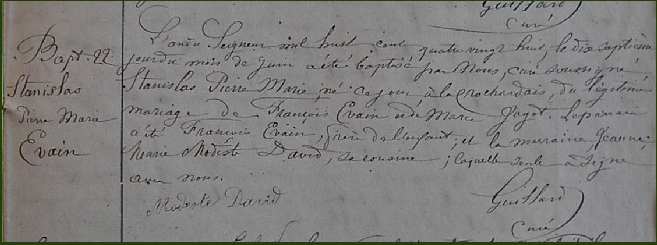 Guillard
Curé
Bapt. 22
Stanislas
Pierre Marie
Evain
L'an du Seigneur mil huit cent quatre vingt huit, le dix septième
jour du mois de Juin a été baptisé par Nous, curé soussigné
Stanislas Pierre Marie, né ce jour à la Rochardais, du légitime
mariage de François Evain et de Marie Jagot. Le parrain
a été François Evain, frère de l'enfant, et la marraine Jeanne
Marie Modeste David, sa cousine; laquelle seule a signé
avec nous.
Modeste David
Guillard
Curé